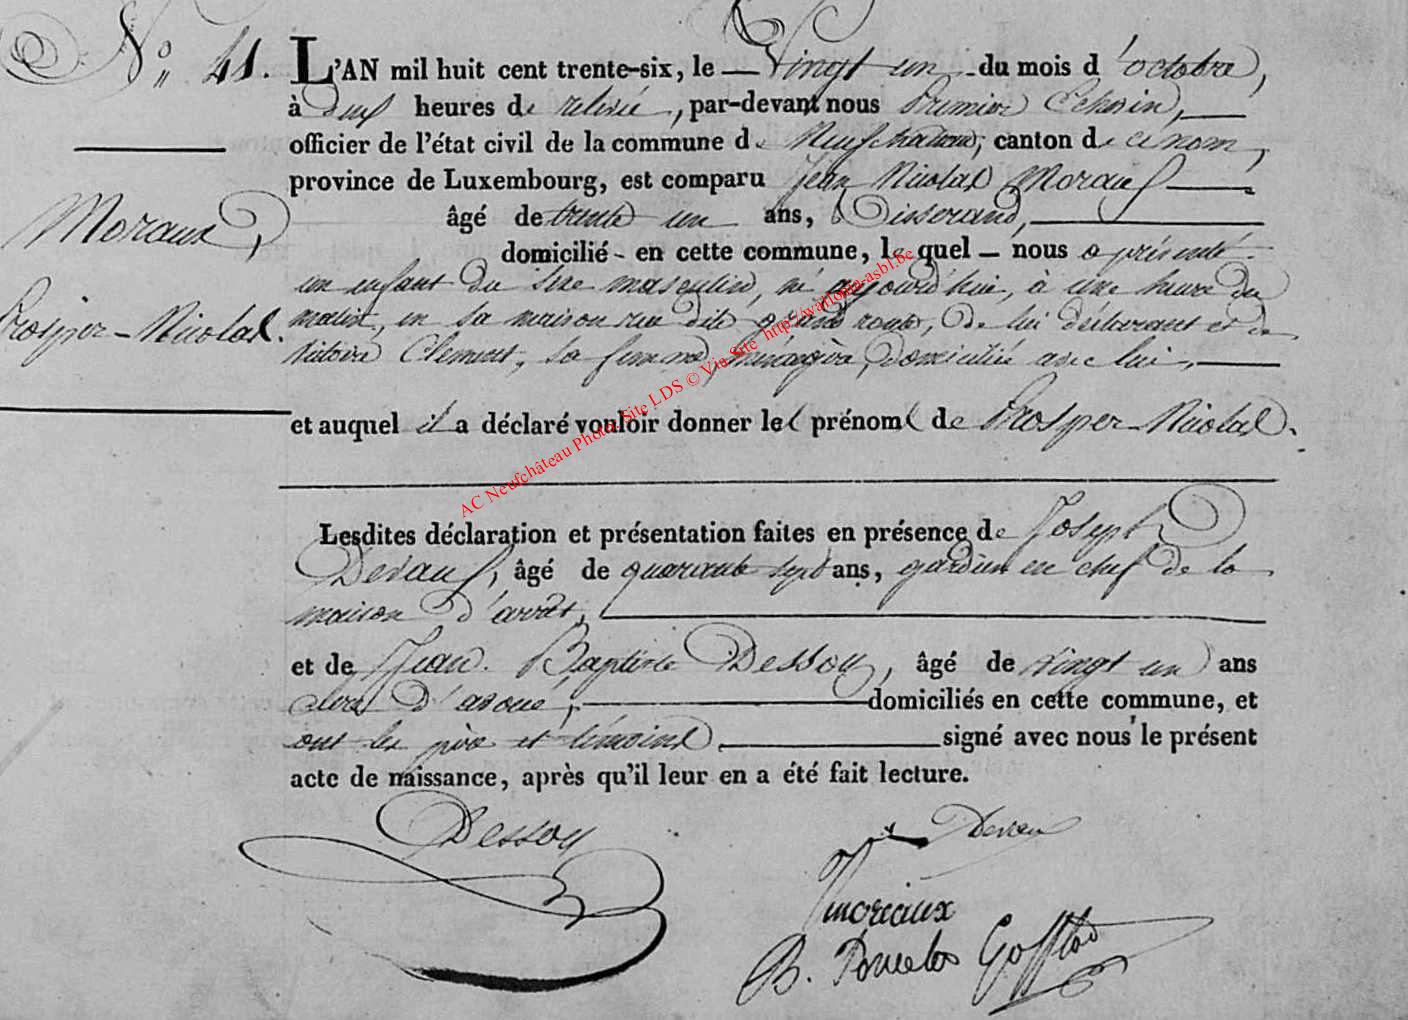 N° 41.
L'AN mil huit cent trente-six, le Vingt un du mois d'octobre,
à deux heures de relevée, par-devant nous Premier Echevin,
officier de l'état civil de la commune de Neufchateau, canton de ce nom,
province de Luxembourg, est comparu Jean Nicolas Moraux
âgé de trente un ans, Tisserand,
domicilié en cette commune, lequel nous a présenté
un enfant du sexe masculin, né aujourd'hui, à une heure du
matin, en sa maison rue dite grand route, de lui déclarant et de
Victoire Clement, sa femme, ménagère, domiciliée avec lui,
et auquel il a déclaré vouloir donner les prénoms de Prosper-Nicolas.
Moraux,
Prosper-Nicolas.
Lesdites déclaration et présentation faites en présence de Joseph
Devaux, âgé de quarante sept ans, gardien en chef de la
maison d'arrêt,
et de Jean Baptiste Dessoy, âgé de vingt un ans
clerc d'avoué, domiciliés en cette commune, et
ont les père et témoins signé avec nous le présent
acte de naissance, après qu'il leur en a été fait lecture.
Dessoy
moriaux
B. Poncelet
AC Neufchâteau Photo Site LDS © Via Site http://wallonia-asbl.be